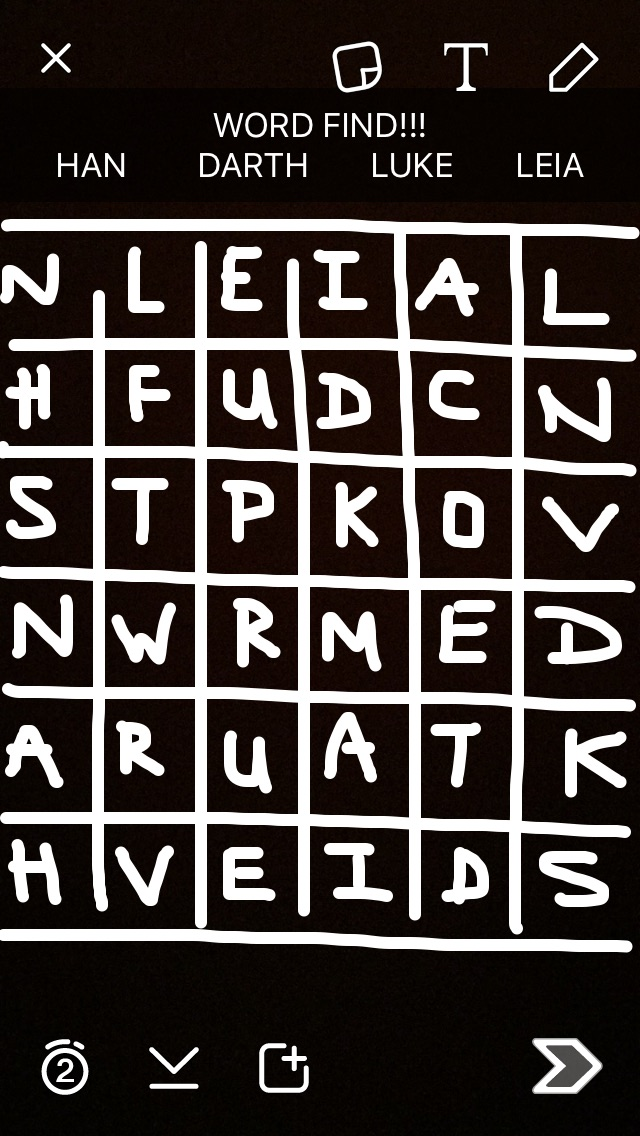 WORD FIND!!!
HAN DARTH LUKE LEIA
N L E I A L
H F U D C N
S T P K O V
N W R M E D
A R U A T K
H V E I D S
T
2